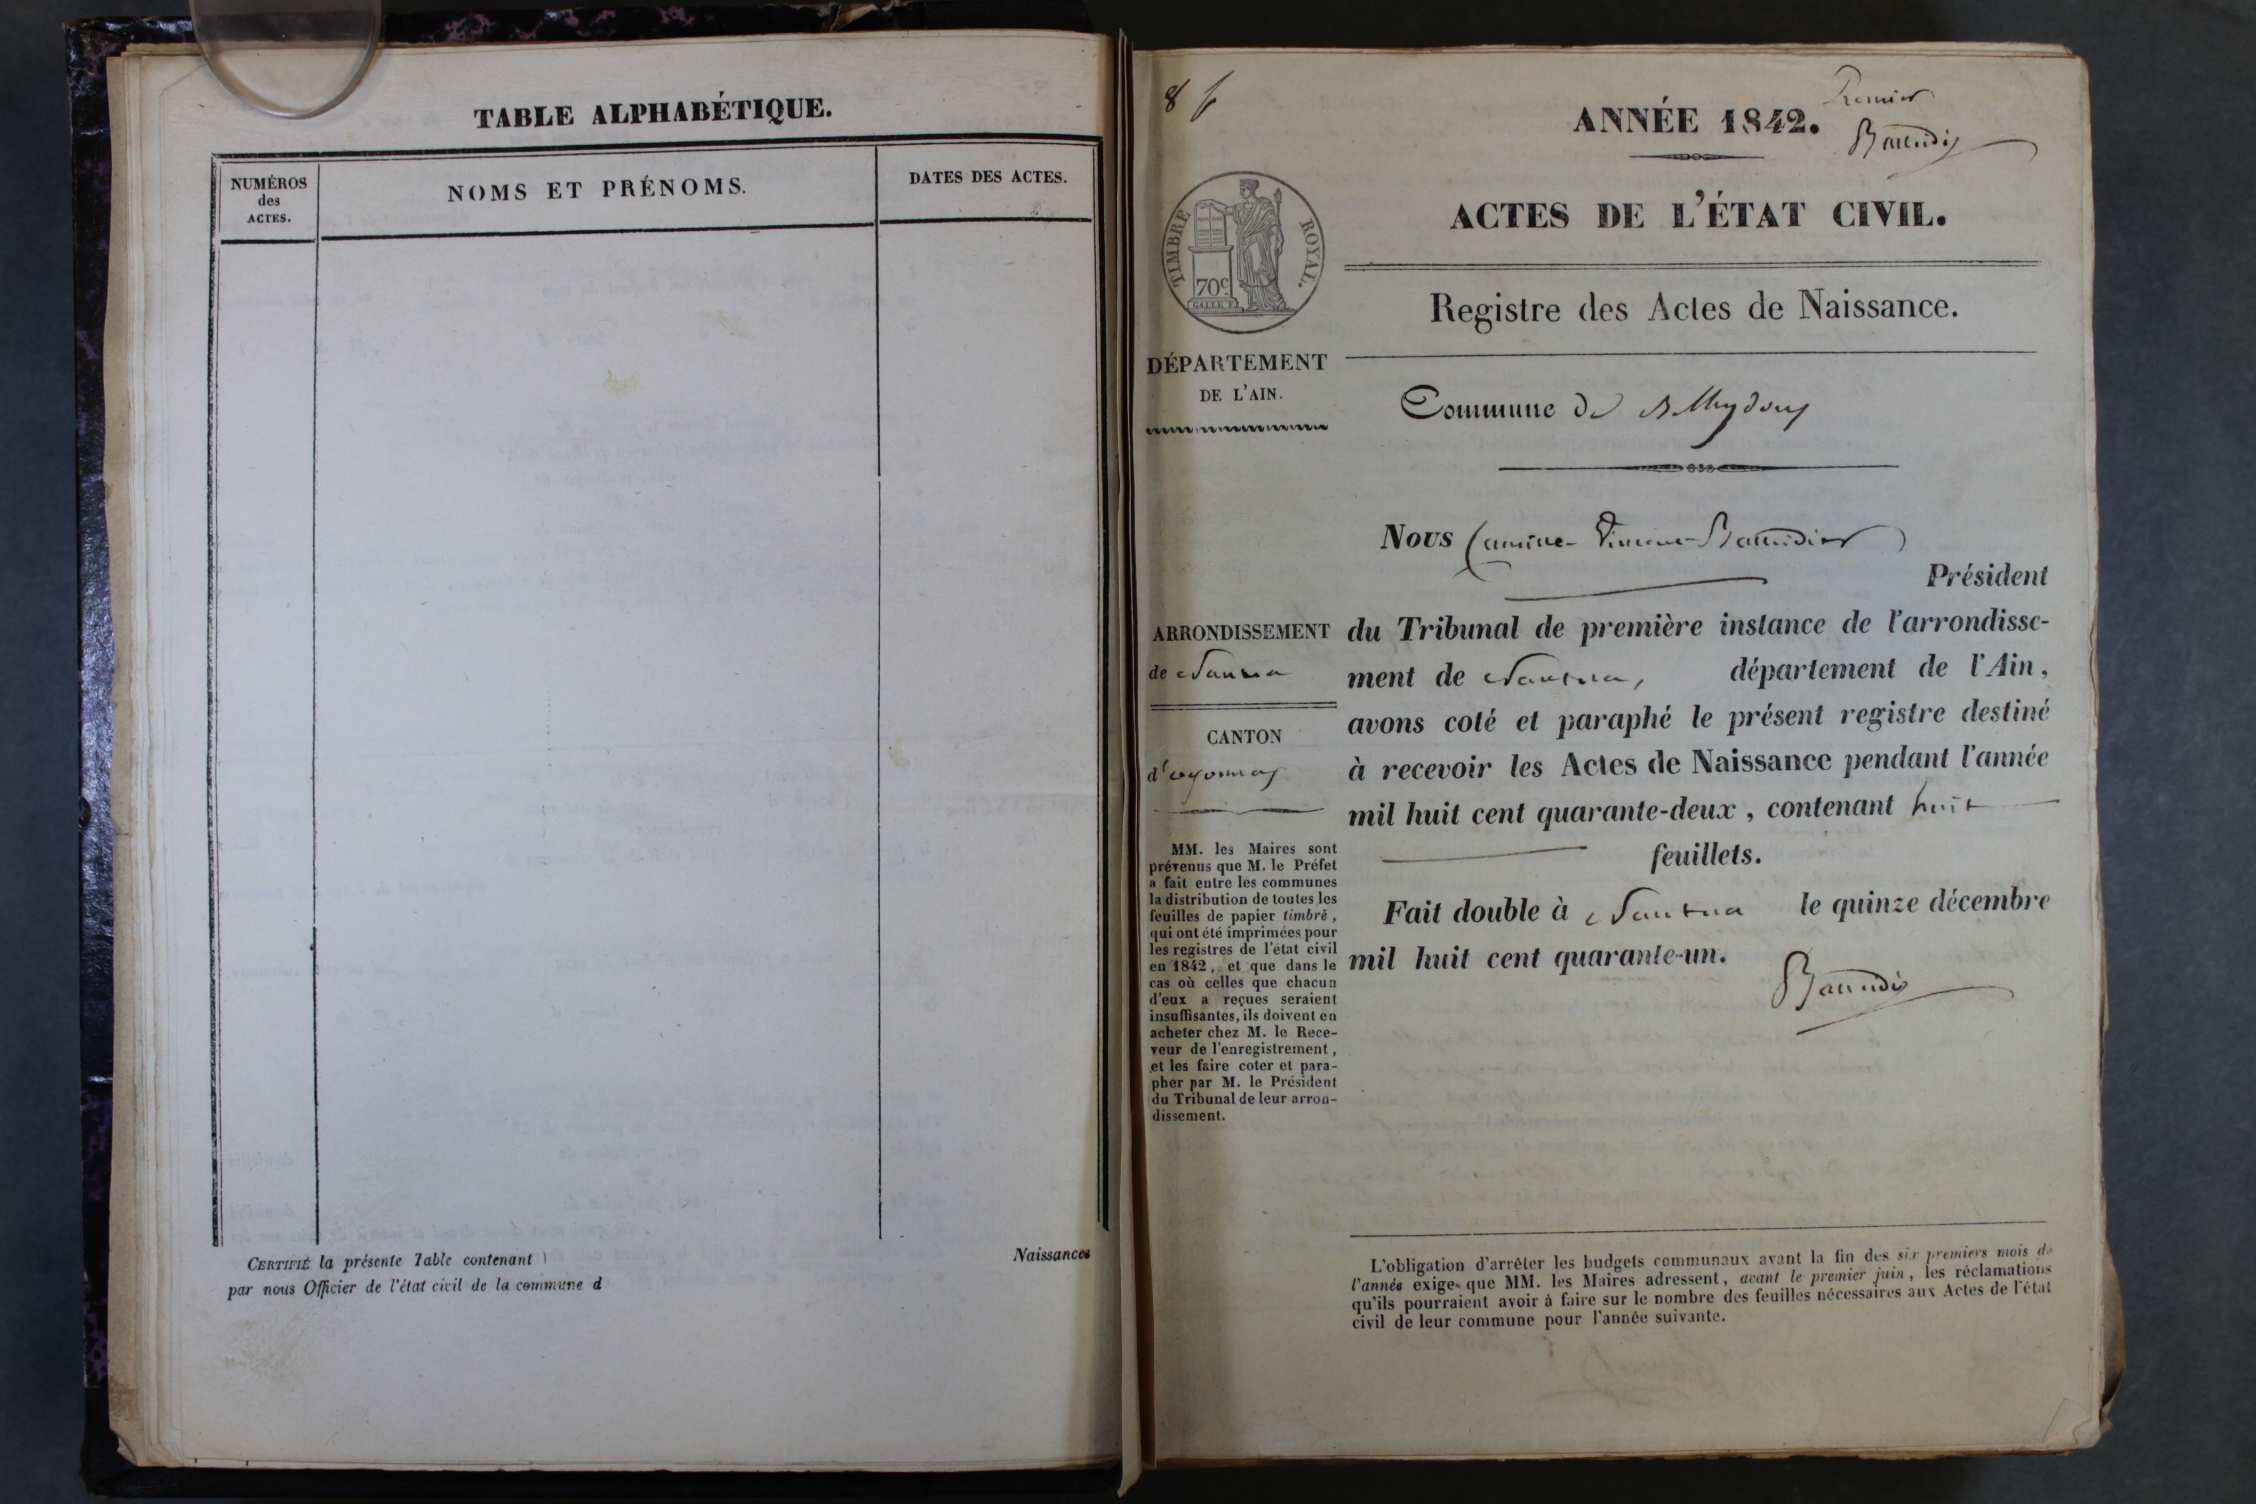 TABLE ALPHABÉTIQUE.
NUMÉROS
des
ACTES.
NOMS ET PRÉNOMS.
DATES DES ACTES.
CERTIFIÉ la présente Table contenant
Naissances
par nous Officier de l'état civil de la commune d
8 f
Premier
ANNÉE 1842.
ACTES DE L'ÉTAT CIVIL.
TIMBRE ROYAL.
70c
Registre des Actes de Naissance.
DÉPARTEMENT
DE L'AIN.
Commune de
Nous Camille
Président
ARRONDISSEMENT
de Nantua
CANTON
d'oyonnax
du Tribunal de première instance de l'arrondisse-
ment de Nantua, département de l'Ain,
avons coté et paraphé le présent registre destiné
à recevoir les Actes de Naissance pendant l'année
mil huit cent quarante-deux, contenant huit
feuillets.
Fait double à Nantua le quinze décembre
mil huit cent quarante-un.
MM. les Maires sont
prévenus que M. le Préfet
a fait entre les communes
la distribution de toutes les
feuilles de papier timbré,
qui ont été imprimées pour
les registres de l'état civil
en 1842, et que dans le
cas où celles que chacun
d'eux a reçues seraient
insuffisantes, ils doivent en
acheter chez M. le Rece-
veur de l'enregistrement,
et les faire coter et para-
pher par M. le Président
du Tribunal de leur arron-
dissement.
L'obligation d'arrêter les budgets communaux avant la fin des six premiers mois de
l'année exige que MM. les Maires adressent, avant le premier juin, les réclamations
qu'ils pourraient avoir à faire sur le nombre des feuilles nécessaires aux Actes de l'état
civil de leur commune pour l'année suivante.